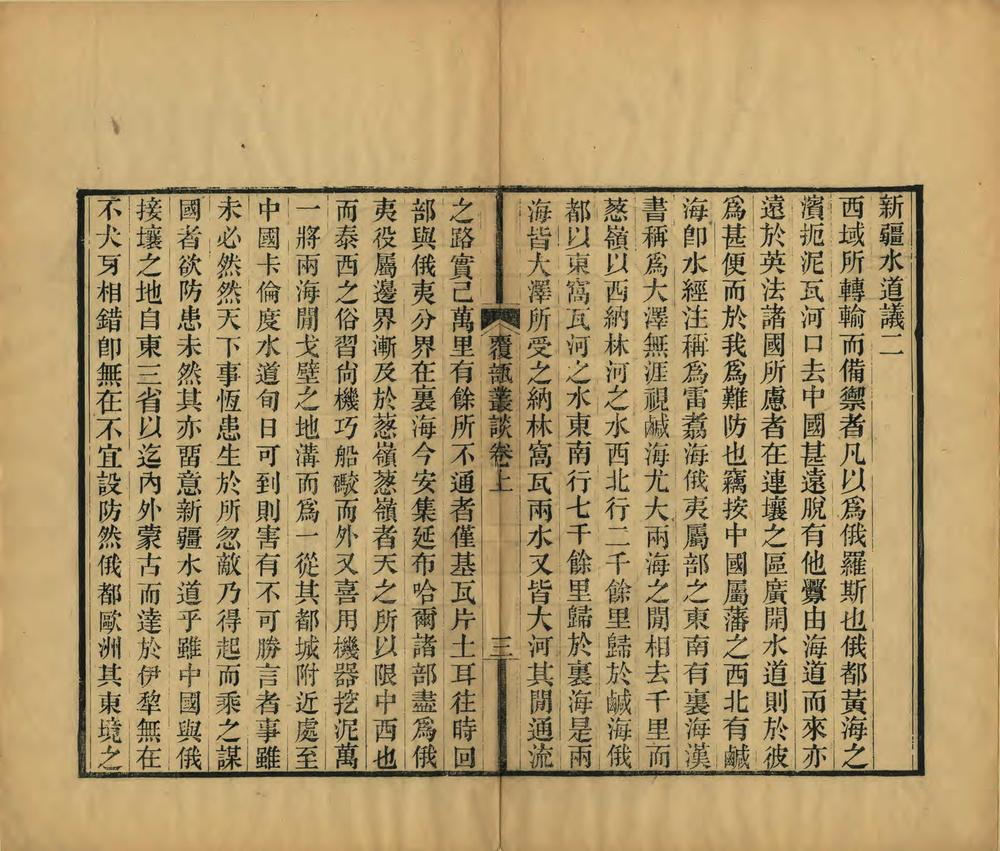 新疆水道議二
西域所轉輸而備禦者凡以爲俄羅斯也俄都黃海之
濱扼泥瓦河口去中國甚遠脫有他釁由海道而來亦
遠於英法諸國所慮者在連壤之區廣開水道則於彼
爲甚便而於我爲難防也竊按中國屬藩之西北有鹹
海卽水經注稱爲雷翥海俄夷屬部之東南有裏海漢
書稱爲大澤無涯視鹹海尤大兩海之閒相去千里而
葱嶺以西納林河之水西北行二千餘里歸於鹹海俄
都以東窩瓦河之水東南行七千餘里歸於裏海是兩
海皆大澤所受之納林窩瓦兩水又皆大河其開通流
覆瓿叢談卷上
三
之路實已萬里有餘所不通者僅基瓦片土耳往時回
部與俄夷分界在裏海今安集延布哈爾諸部盡爲俄
夷役屬邊界漸及於葱嶺葱嶺者天之所以限中西也
而泰西之俗習尙機巧船礮而外又喜用機器挖泥萬
一將兩海閒戈壁之地溝而爲一從其都城附近處至
中國卡倫度水道旬日可到則害有不可勝言者事雖
未必然然天下事恆患生於所忽敵乃得起而乘之謀
國者欲防患未然其亦畱意新疆水道乎雖中國與俄
接壤之地自東三省以迄內外蒙古而達於伊犂無在
不犬牙相錯卽無在不宜設防然俄都歐洲其東境之